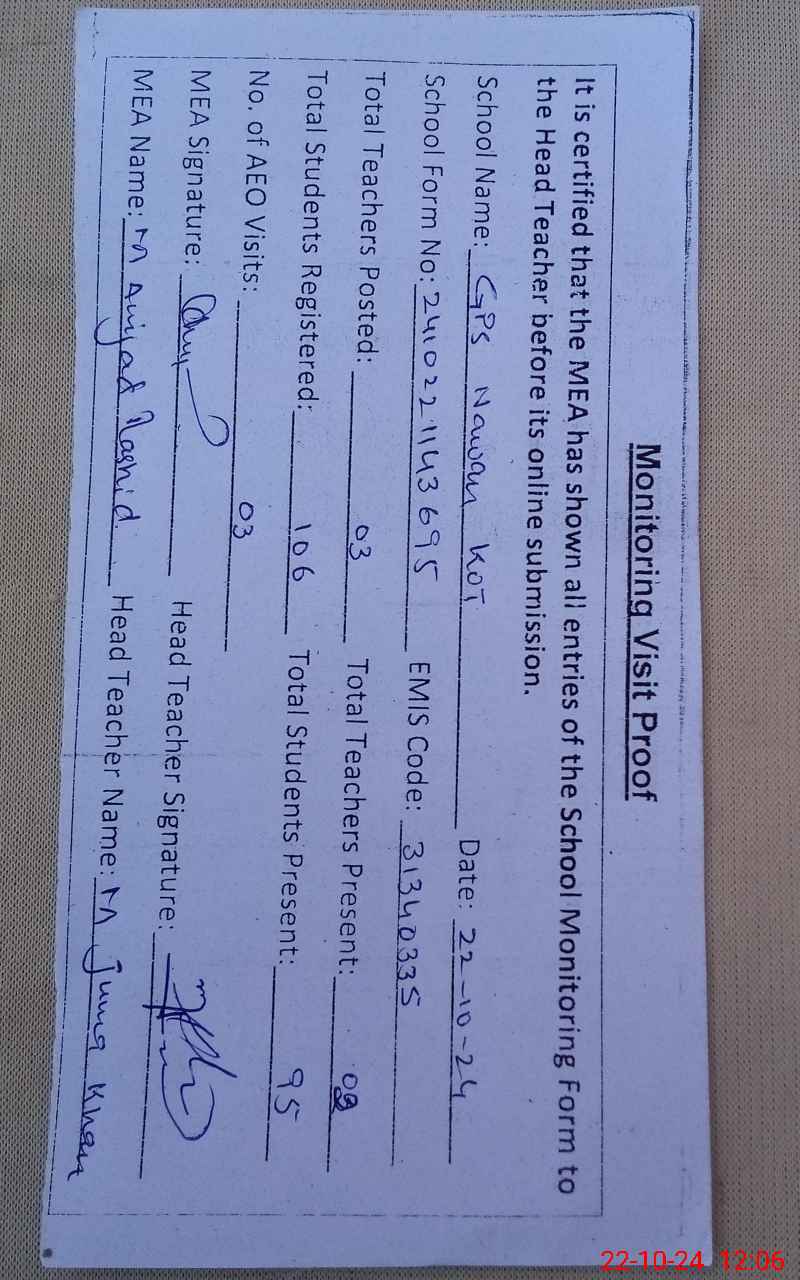 Monitoring Visit Proof
It is certified that the MEA has shown all entries of the School Monitoring Form to
the Head Teacher before its online submission.
School Name: GPS Nawan Kot Date: 22-10-24
School Form No: 2410221143695 EMIS Code: 31340335
Total Teachers Posted: 03 Total Teachers Present: 02
Total Students Registered: 106 Total Students Present: 95
No. of AEO Visits: 03
MEA Signature: Head Teacher Signature:
MEA Name: M Amjad Rashid Head Teacher Name: M Juma Khan
22-10-24 12:06